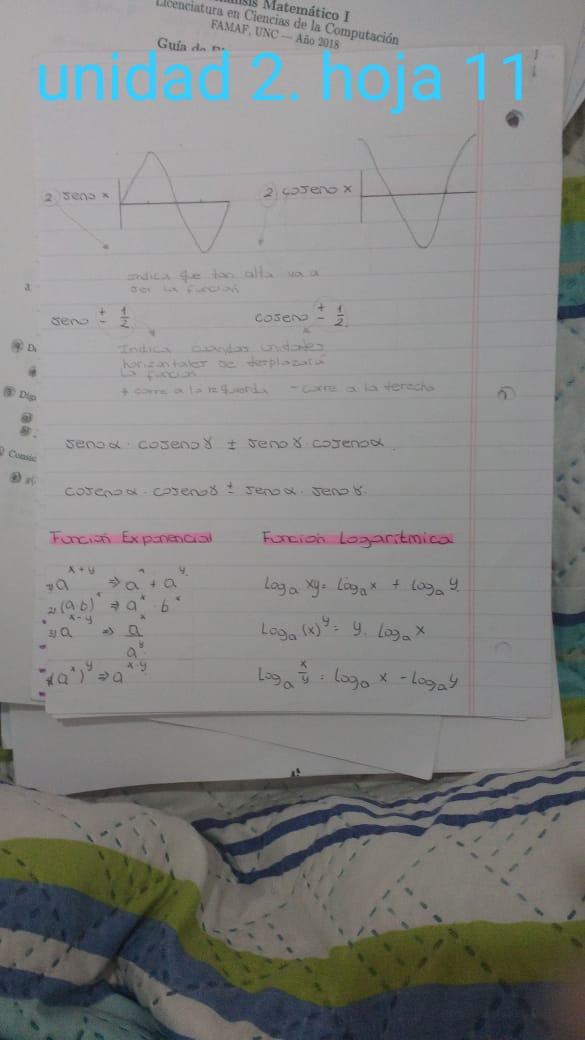 Matemático I
Licenciatura en Ciencias de la Computación
FAMAF, UNC — Año 2018
Guía de
unidad 2. hoja 11
2 seno x
2 coseno x
indica que tan alta va a
ser la función
seno ± 1/2
coseno ± 1/2.
Indica cuandas unidades
horizontales se desplazará
la función
+ corre a la izquierda - corre a la derecha
senoα · cosenoγ ± senoγ · cosenoα.
cosenoα · cosenoγ ± senoα · senoγ.
Función Exponencial
Función Logarítmica
1) a^(x+y) ⇒ a^x + a^y
2) (a·b)^x ⇒ a^x · b^x
3) a^(x-y) ⇒ a^x / a^y
(a^x)^y ⇒ a^(x·y)
Log_a xy = Log_a x + Log_a y.
Log_a (x)^y = y. Log_a x
Log_a x/y = Log_a x - Log_a y